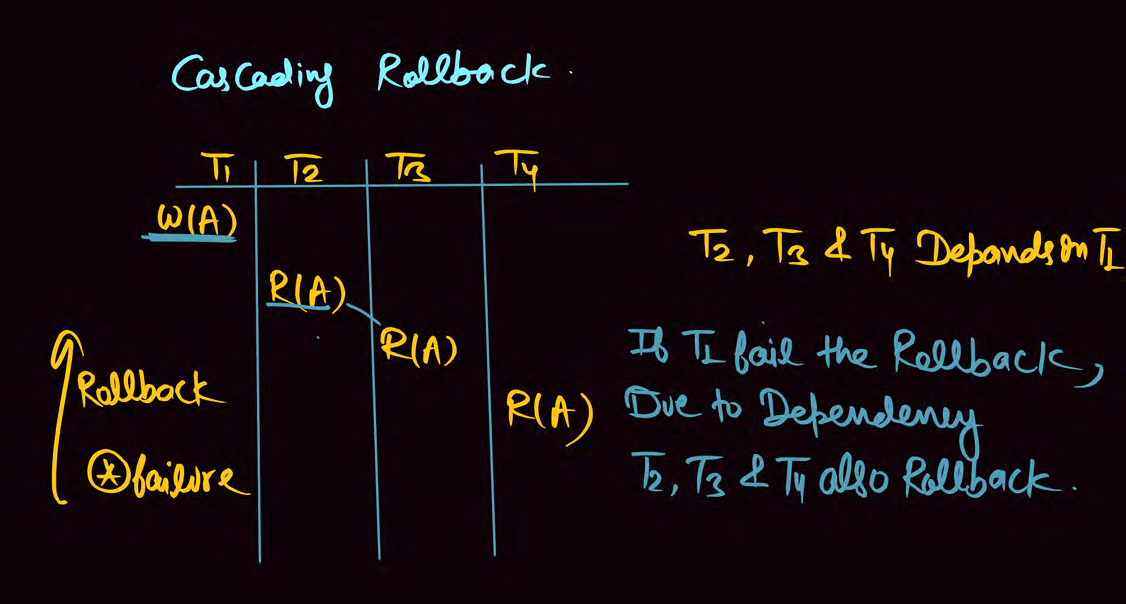 Cascading Rollback.
T1 T2 T3 T4
W(A)
R(A)
R(A)
R(A)
Rollback
* failure
T2, T3 & T4 Depands on T1
If T1 fail the Rollback,
Due to Dependency
T2, T3 & T4 also Rollback.